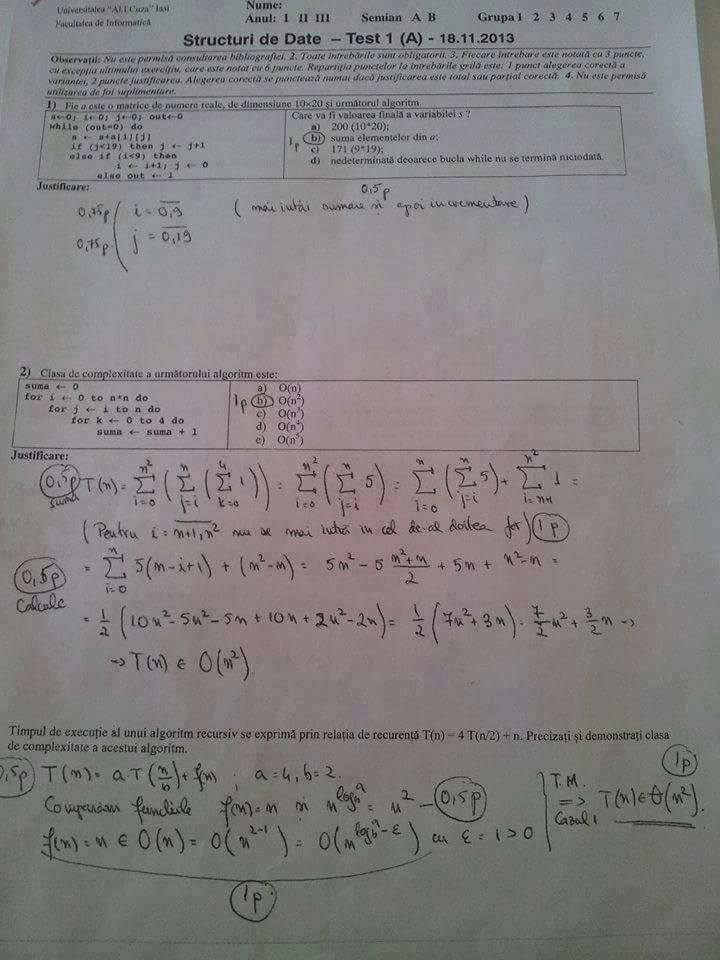 Universitatea "Al.I.Cuza" Iasi
Facultatea de Informatică
Nume:
Anul: I II III Semian A B Grupa 1 2 3 4 5 6 7
Structuri de Date – Test 1 (A) - 18.11.2013
Observații: Nu este permisă consultarea bibliografiei. 2. Toate întrebările sunt obligatorii. 3. Fiecare întrebare este notată cu 3 puncte,
cu excepția ultimului exercițiu, care este notat cu 6 puncte. Repartiția punctelor la întrebările grilă este: 1 punct alegerea corectă a
variantei, 2 puncte justificarea. Alegerea corectă se punctează numai dacă justificarea este total sau parțial corectă. 4. Nu este permisă
utilizarea de foi suplimentare.
1) Fie a este o matrice de numere reale, de dimensiune 10×20 și următorul algoritm.
s←0; i←0; j←0; out←0
while (out=0) do
s ← s+a[i][j]
if (j<19) then j ← j+1
else if (i<9) then
i ← i+1; j ← 0
else out ← 1
Care va fi valoarea finală a variabilei s ?
a) 200 (10*20);
1p b) suma elementelor din a;
c) 171 (9*19);
d) nedeterminată deoarece bucla while nu se termină niciodată.
Justificare:
0,5p
0,75p i = 0,9 (mai întâi sumare si apoi incrementare)
0,75p j = 0,19
2) Clasa de complexitate a următorului algoritm este:
suma ← 0
for i ← 0 to n*n do
for j ← i to n do
for k ← 0 to 4 do
suma ← suma + 1
a) O(n)
1p b) O(n²)
c) O(n³)
d) O(n⁴)
e) O(n⁵)
Justificare:
0,5p suma T(n) = Σ_{i=0}^{n²} (Σ_{j=i}^{n} (Σ_{k=0}^{4} 1)) = Σ_{i=0}^{n²} (Σ_{j=i}^{n} 5) = Σ_{i=0}^{n} (Σ_{j=i}^{n} 5) + Σ_{i=n+1}^{n²} 1 =
(Pentru i = n+1,n² nu se mai intră in cel de-al doilea for) 1p
0,5p Calcule = Σ_{i=0}^{n} 5(n-i+1) + (n²-n) = 5n² - 5 (n²+n)/2 + 5n + n²-n =
= 1/2 (10n² - 5n² - 5n + 10n + 2n² - 2n) = 1/2 (7n² + 3n) = 7/2 n² + 3/2 n →
→ T(n) ∈ O(n²).
Timpul de execuție al unui algoritm recursiv se exprimă prin relația de recurență T(n) = 4 T(n/2) + n. Precizați și demonstrați clasa
de complexitate a acestui algoritm.
0,5p T(n) = a·T(n/b) + f(n) ; a=4, b=2.
Comparăm funcțiile f(n)=n si n^{log_b a} = n² – 0,5p
f(n) = n ∈ O(n) = O(n^{2-1}) = O(n^{log_b a - ε}) cu ε = 1 > 0
T.M. ⇒ Cazul 1 T(n) ∈ Θ(n²). 1p
1p